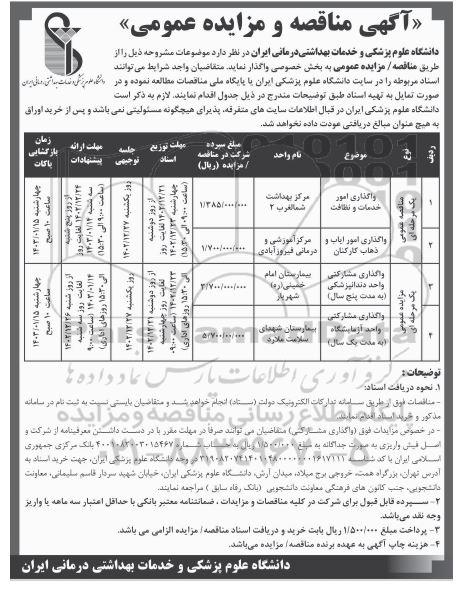 «آگهی مناقصه و مزایده عمومی»
دانشگاه علوم پزشکی و خدمات بهداشتی درمانی ایران
دانشگاه علوم پزشکی و خدمات بهداشتی‌درمانی ایران در نظر دارد موضوعات مشروحه ذیل را از
طریق مناقصه/ مزایده عمومی به بخش خصوصی واگذار نماید. متقاضیان واجد شرایط می توانند
اسناد مربوطه را در سایت دانشگاه علوم پزشکی ایران یا پایگاه ملی مناقصات مطالعه نموده و در
صورت تمایل به تهیه اسناد طبق توضیحات مندرج در ذیل جدول اقدام نمایند. لازم به ذکر است
دانشگاه علوم پزشکی ایران در قبال اطلاعات سایت های متفرقه، پذیرای هیچگونه مسئولیتی نمی باشد و پس از خرید اوراق
به هیچ عنوان مبالغ دریافتی عودت داده نخواهد شد.
ردیف نوع موضوع نام واحد مبلغ سپرده شرکت در مناقصه / مزایده (ریال) مهلت توزیع اسناد جلسه توجیهی مهلت ارائه پیشنهادات زمان بازگشایی پاکات
۱ واگذاری امور خدمات و نظافت مرکز بهداشت شمالغرب ۲ ۱/۳۸۵/۰۰۰/۰۰۰
مناقصه عمومی یک مرحله ای
۲ واگذاری امور ایاب و ذهاب کارکنان مرکزآموزشی و درمانی فیروزآبادی ۱/۷۰۰/۰۰۰/۰۰۰
روز یکشنبه ۱۴۰۲/۱۲/۲۷
چهارشنبه ۱۴۰۳/۰۱/۱۵ ساعت ۱۰ صبح
۳ واگذاری مشارکتی واحد دندانپزشکی (به مدت پنج سال) بیمارستان امام خمینی(ره) شهریار ۳/۷۰۰/۰۰۰/۰۰۰
مزایده عمومی یک مرحله ای
۴ واگذاری مشارکتی واحد آزمایشگاه (به مدت یک سال) بیمارستان شهدای سلامت ملارد ۵/۷۰۰/۰۰۰/۰۰۰
روز یکشنبه ۱۴۰۲/۱۲/۲۷
چهارشنبه ۱۴۰۳/۰۱/۱۵ ساعت ۱۰ صبح
توضیحات :
۱. نحوه دریافت اسناد:
- مناقصات فوق از طریق سامانه تدارکات الکترونیک دولت (ستاد) انجام خواهد شد و متقاضیان بایستی نسبت به ثبت نام در سامانه
مذکور و خرید اسناد اقدام نمایند.
- در خصوص مزایدات فوق (واگذاری مشارکتی) متقاضیان می توانند صرفا در مهلت مقرر با در دست داشتن معرفینامه از شرکت و
اصل فیش واریزی به صورت جداگانه به مبلغ ۱/۵۰۰/۰۰۰ ریال به حساب شماره
بانک مرکزی جمهوری
اسلامی ایران با کد شناسه
در وجه دانشگاه علوم پزشکی ایران، جهت خرید اسناد به
آدرس تهران، بزرگراه همت، خروجی برج میلاد، میدان آرش، دانشگاه علوم پزشکی ایران، خیابان شهید سردار قاسم سلیمانی، معاونت
دانشجویی، جنب کانون های فرهنگی معاونت دانشجویی (بانک رفاه سابق ) مراجعه نمایند.
۲- سپرده قابل قبول برای شرکت در کلیه مناقصات و مزایدات ، ضمانتنامه معتبر بانکی با حداقل اعتبار سه ماهه یا واریز
وجه نقد می‌باشد.
۳- پرداخت مبلغ ۱/۵۰۰/۰۰۰ ریال بابت خرید و دریافت اسناد مناقصه/ مزایده الزامی می باشد.
۴- هزینه چاپ آگهی به عهده برنده مناقصه/ مزایده می‌باشد.
دانشگاه علوم پزشکی و خدمات بهداشتی درمانی ایران